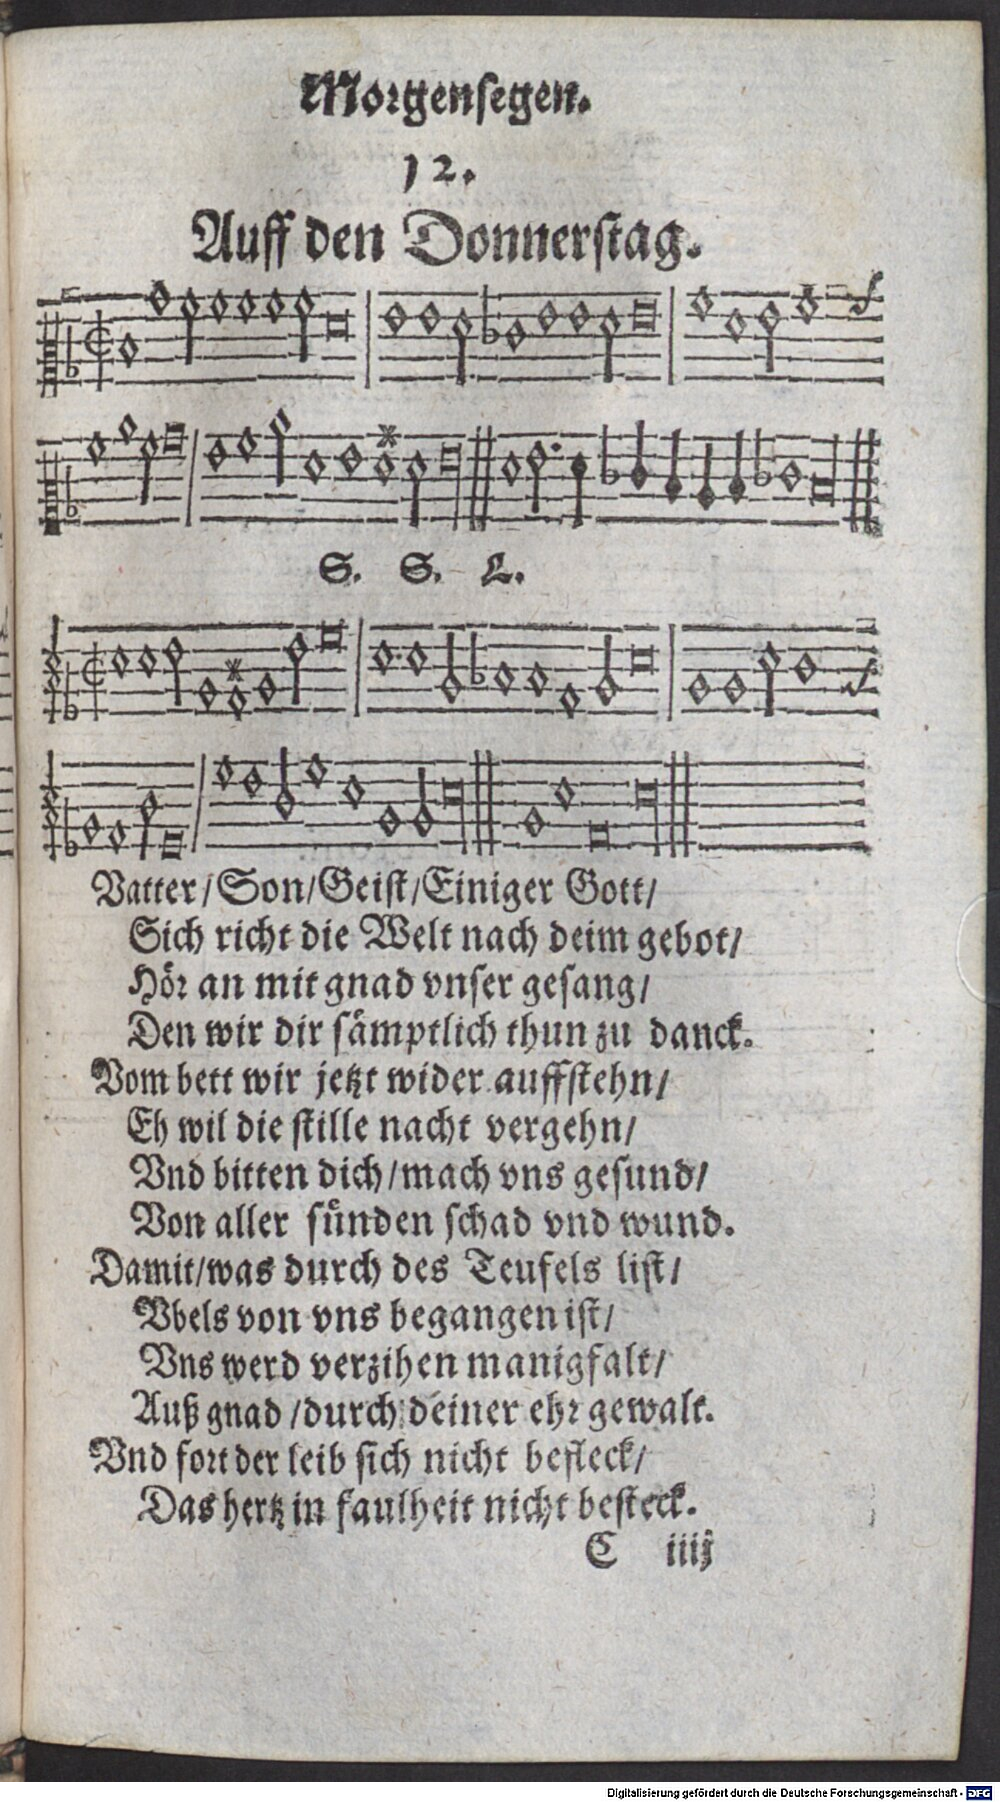 Morgensegen.
12.
Auff den Donnerstag.
S. S. L.
Vatter/Son/Geist/Einiger Gott/
Sich richt die Welt nach deim gebot/
Hör an mit gnad vnser gesang/
Den wir dir sämptlich thun zu danck.
Vom bett wir jetzt wider auffstehn/
Eh wil die stille nacht vergehn/
Vnd bitten dich/mach vns gesund/
Von aller sünden schad vnd wund.
Damit/was durch des Teufels list/
Vbels von vns begangen ist/
Vns werd verzihen manigfalt/
Auß gnad/durch deiner ehr gewalt.
Vnd fort der leib sich nicht befleck/
Das hertz in faulheit nicht besteck.
C iiij
Digitalisierung gefördert durch die Deutsche Forschungsgemeinschaft - DFG